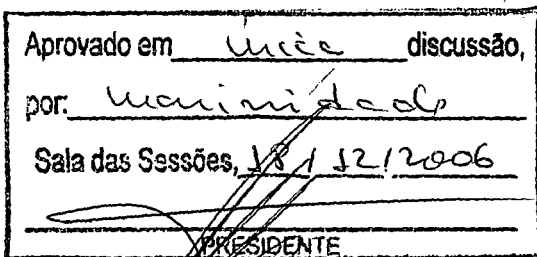 Aprovado em única discussão,
por: unanimidade
Sala das Sessões, 18/12/2006
PRESIDENTE